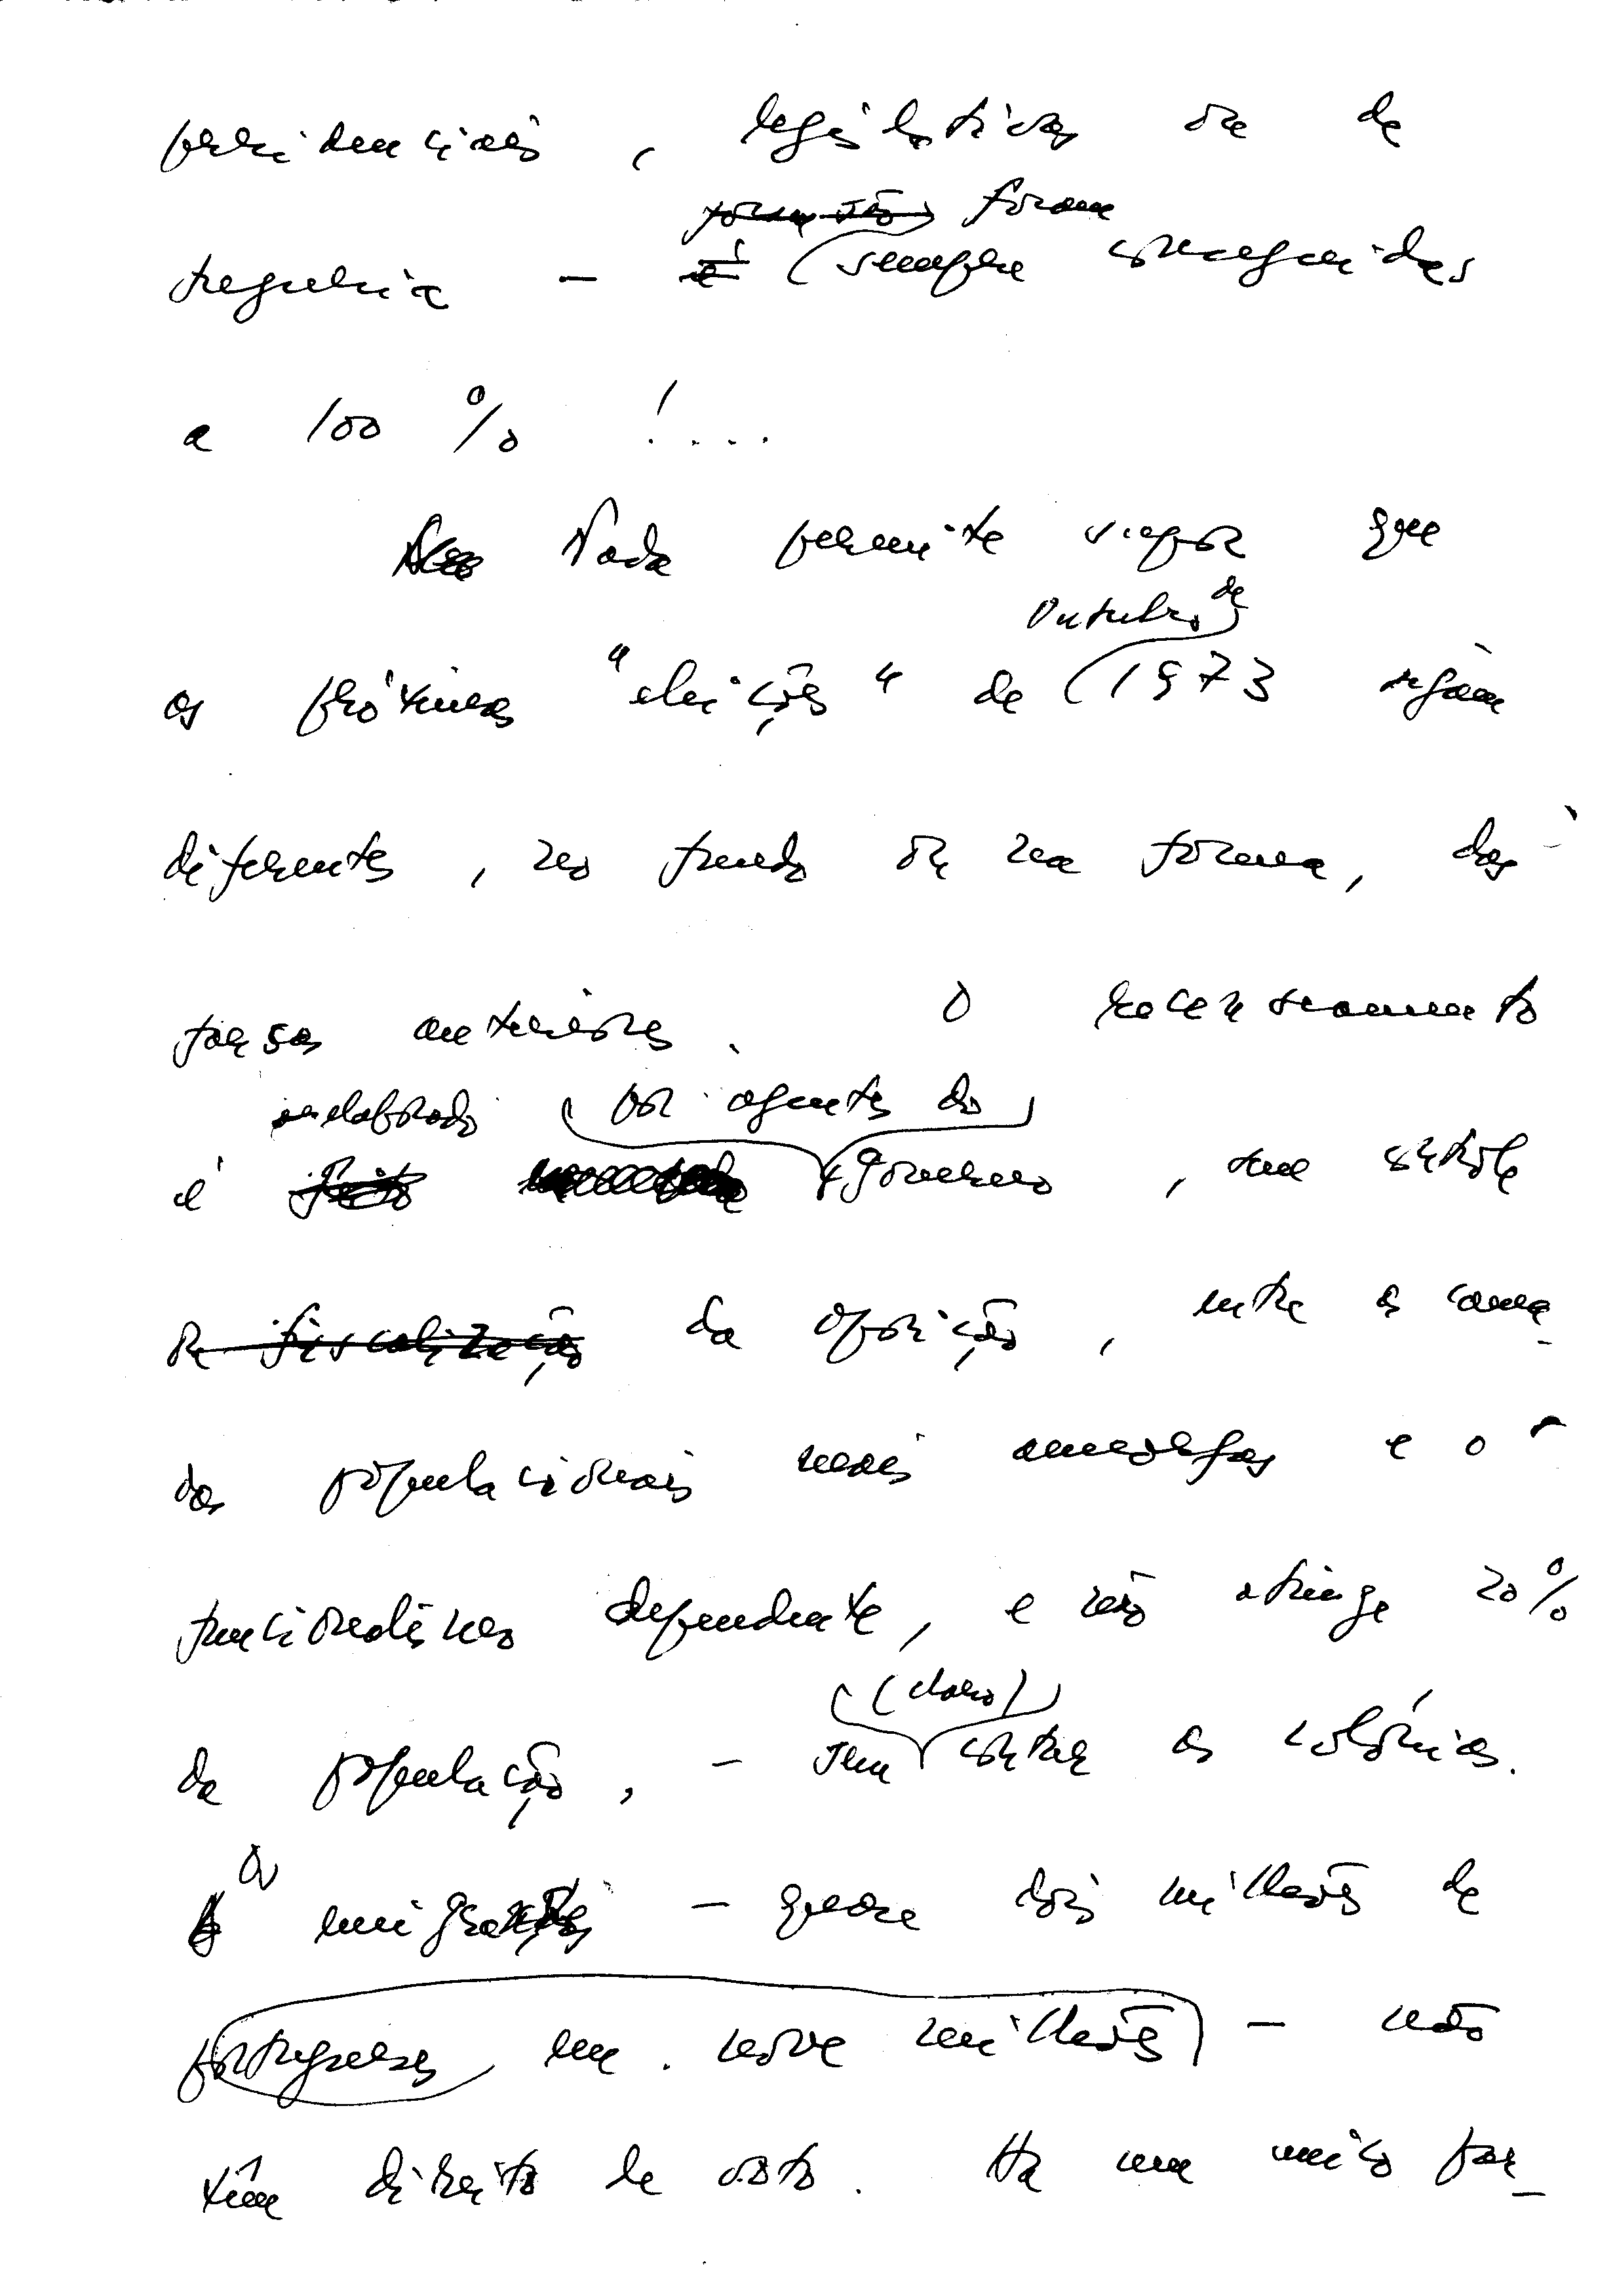 presidenciais, legislativas ou de
foram
freguesia – sempre conseguidas
a 100 % !....
Nada permite supor que
Outubro de
as próximas "eleições" de 1973 sejam
diferentes, no fundo ou na forma, das
farsas anteriores. O recenseamento
é elaborado por agentes do
Governo, sem contrôle
ou fiscalização da oposição, entre as cama-
das populacionais mais amorfas e o
funcionalismo dependente, e não atinge 20%
(claro)
da população, – sem contar as colónias.
Os emigrantes – quase dois milhões de
portugueses, em nove milhões – não
têm direito de voto. Há um único par-